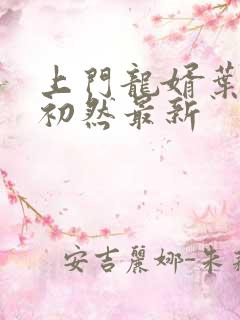 上門龍婿葉
初然最新
安吉麗娜-朱莉